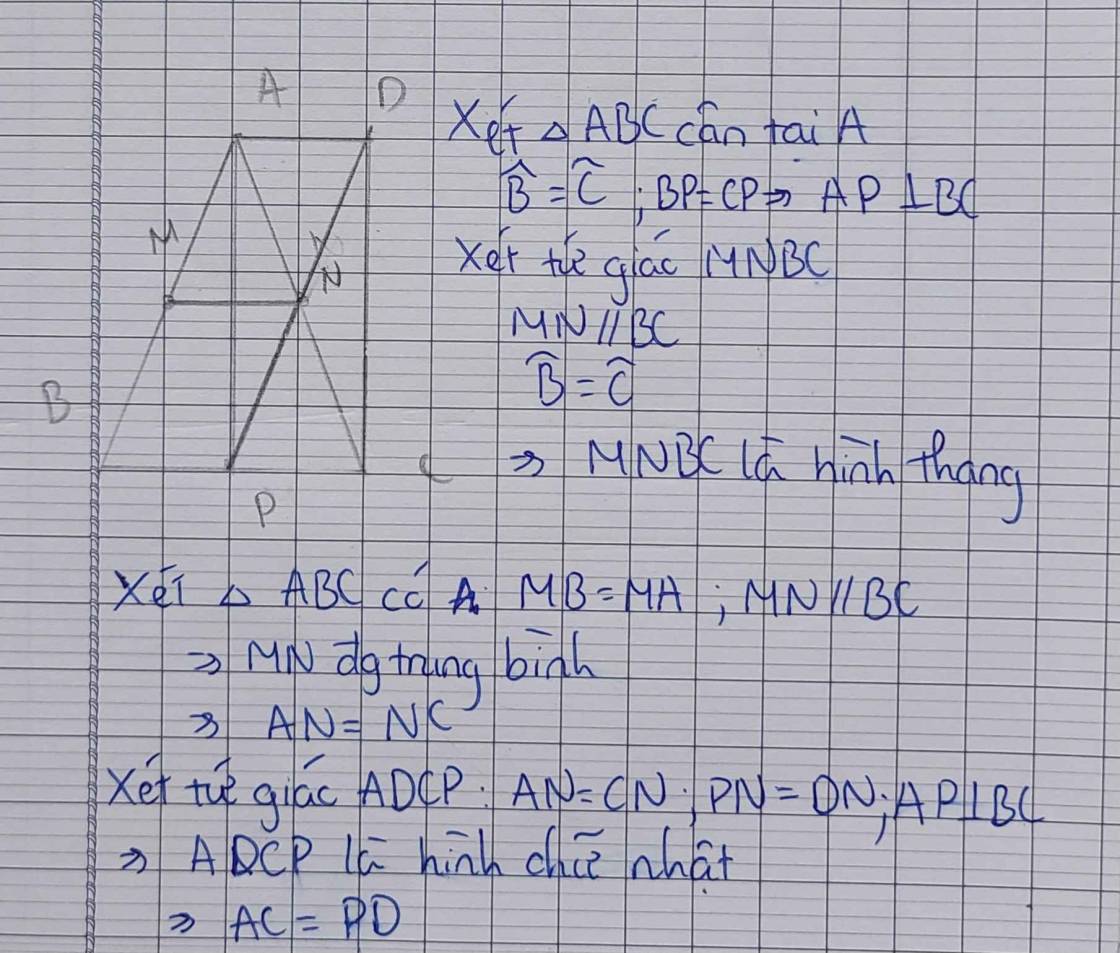 A D
Xét △ ABC cân tại A
B̂ = Ĉ ; BP = CP ⇒ AP ⊥ BC
M
Xét tứ giác MNBC
N
MN // BC
B̂ = Ĉ
B
⇒ MNBC là hình thang
C
P
Xét △ ABC có A: MB = MA ; MN // BC
⇒ MN đg trung bình
⇒ AN = NC
Xét tứ giác ADCP: AN = CN; PN = DN; AP ⊥ BC
⇒ ADCP là hình chữ nhật
⇒ AC = PD